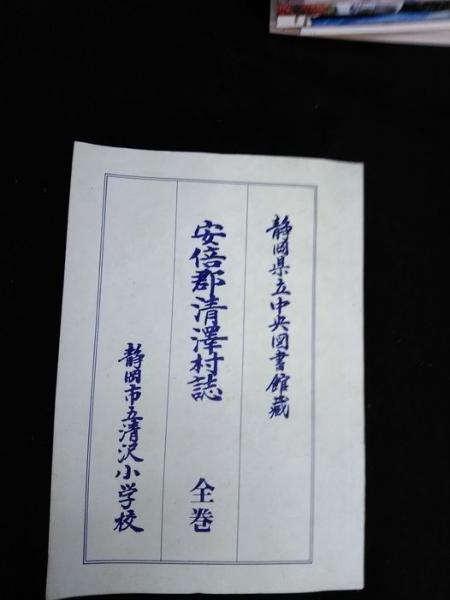 静岡県立中央図書館蔵
安倍郡清澤村誌 全巻
静岡市立清沢小学校